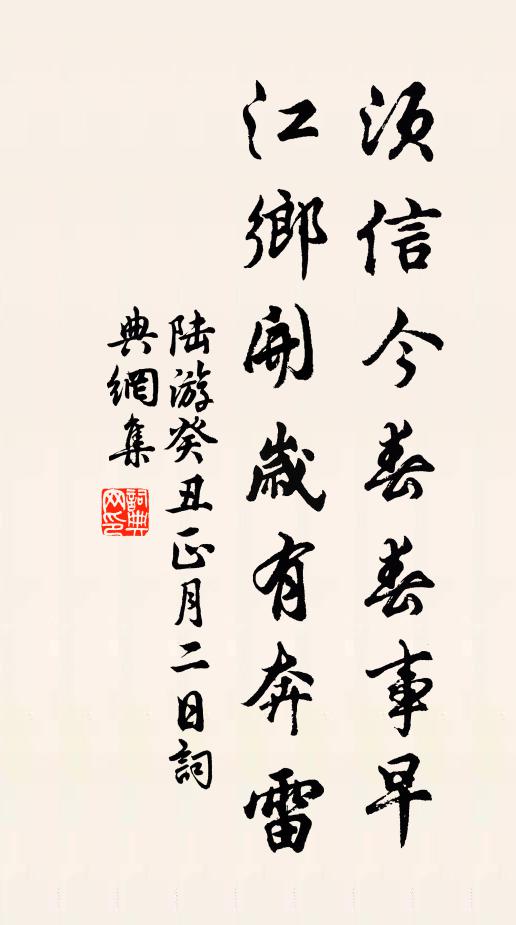 須信今春春事早
江鄉開歲有奔雷
陸游癸丑正月二日詞
典網集
詞典网印